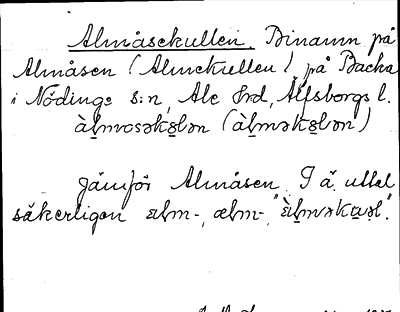 Almåsekullen. Binamn på
Almåsen (Almekullen) på Backa
i Nödinge s:n, Ale hrd, Älfsborgs l.
àl̥mosəku̥lən (àl̥məku̥lən)
Jämför Almåsen. I ä. uttal
säkerligen alm-, ælm-, "àl̥məkas̥l".